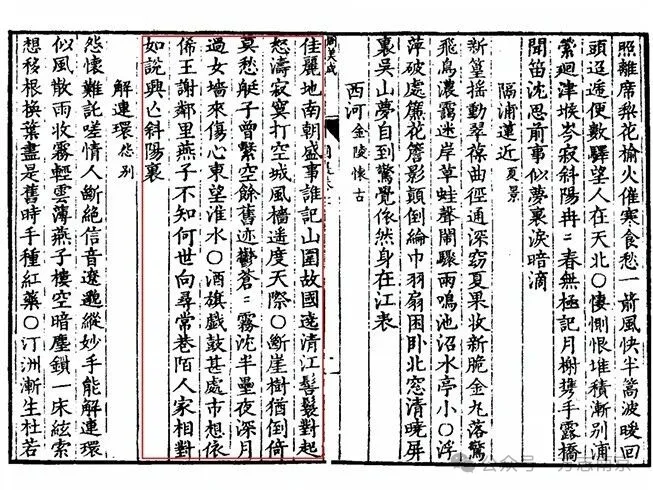 照離席梨花榆火催寒食愁一箭風快半蒿波暖回
頭迢遞便數驛望人在天北○悽惻恨堆積漸別浦
縈廻津堠岑寂斜陽冉〻春無極記月榭携手露橋
聞笛沈思前事似夢裏淚暗滴
隔浦蓮近 夏景
新篁揺動翠葆曲徑通深窈夏果收新脆金丸落驚
飛鳥濃靄迷岸草蛙聲鬧驟雨鳴池沼水亭小○浮
萍破處簾花簷影顛倒綸巾羽扇困卧北窓清曉屏
裏吳山夢自到驚覺依然身在江表
西河 金陵懷古
佳麗地南朝盛事誰記山圍故國遶清江髻鬟對起
怒濤寂寞打空城風檣遥度天際○斷崖樹猶倒倚
莫愁艇子曾繫空餘舊迹鬱蒼〻霧沈半壘夜深月
過女墻來傷心東望淮水○酒旗戲鼓甚處市想依
俙王謝鄰里燕子不知何世向尋常巷陌人家相對
如說興亡斜陽裏
解連環 怨别
怨懷難託嗟情人斷絕信音遼邈縱妙手能解連環
似風散雨收霧輕雲薄燕子樓空暗塵鎖一床絃索
想移根換葉盡是舊時手種紅藥○汀洲漸生杜若
公众号·方志南京